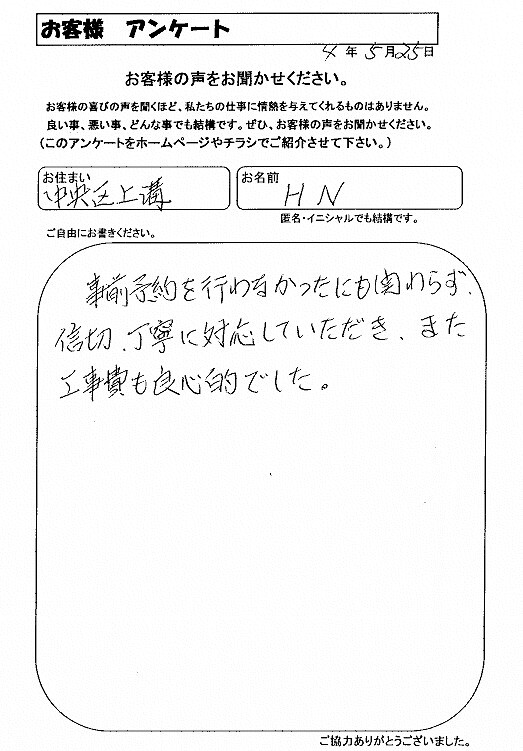 お客様 アンケート
4年5月25日
お客様の声をお聞かせください。
お客様の喜びの声を聞くほど、私たちの仕事に情熱を与えてくれるものはありません。
良い事、悪い事、どんな事でも結構です。ぜひ、お客様の声をお聞かせください。
(このアンケートをホームページやチラシでご紹介させて下さい。)
お住まい
中央区上溝
お名前
H N
匿名・イニシャルでも結構です。
ご自由にお書きください。
事前予約を行わなかったにも関わらず、
信切、丁寧に対応していただき、また
工事費も良心的でした。
ご協力ありがとうございました。